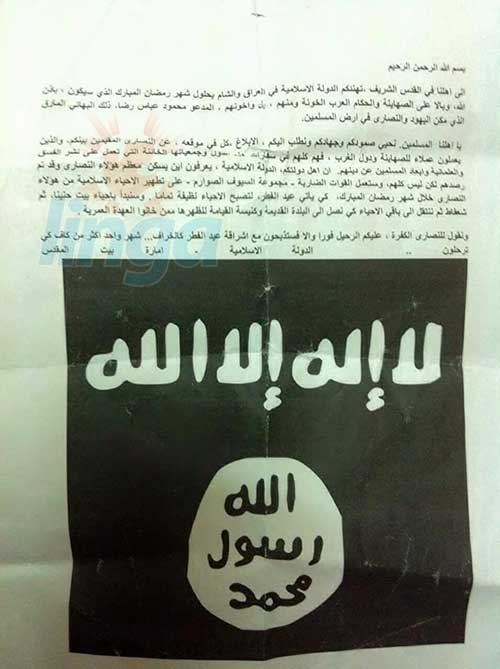 بسم الله الرحمن الرحيم
الى اهلنا في القدس الشريف ،تهنئكم الدولة الاسلامية في العراق والشام بحلول شهر رمضان المبارك الذي سيكون ، باذن
الله، وبالا على الصهاينة والحكام العرب الخونة ومنهم ، بل واخونهم ، المدعو محمود عباس رضا، ذلك البهائي المارق
الذي مكن اليهود والنصارى في ارض المسلمين.
يا اهلنا المسلمين. نحيي صمودكم وجهادكم ونطلب اليكم ، الابلاغ ،كل في موقعه ، عن النصارى المقيمين بينكم، والذين
يعملون عملاء للصهاينة ودول الغرب ، فهم كلهم في سفارات وجمعياتها الخائنة التي تعمل على نشر الفسق
والعلمانية وابعاد المسلمين عن دينهم. ان اهل دولتكم، الدولة الاسلامية ، يعرفون اين يسكن معظم هؤلاء النصارى وقد تم
رصدهم لكن ليس كلهم، وستعمل القوات الضاربة - مجموعة السيوف الصوارم - على تطهير الاحياء الاسلامية من هؤلاء
النصارى خلال شهر رمضان المبارك، كي يأتي عيد الفطر، لتصبح الاحياء نظيفة تماما. وسنبدأ بأحياء بيت حنينا، ثم
شعفاط ثم ننتقل الى باقي الاحياء كي نصل الى البلدة القديمة وكنيسة القيامة لتطهرها ممن خانوا العهدة العمرية.
ونقول للنصارى الكفرة ، عليكم الرحيل فورا والا فستذبحون مع اشراقة عيد الفطر كالخراف... شهر واحد اكثر من كاف كي
ترحلون .. الدولة الاسلامية امارة بيت المقدس
linga
لا إله إلا الله
الله
رسول
محمد